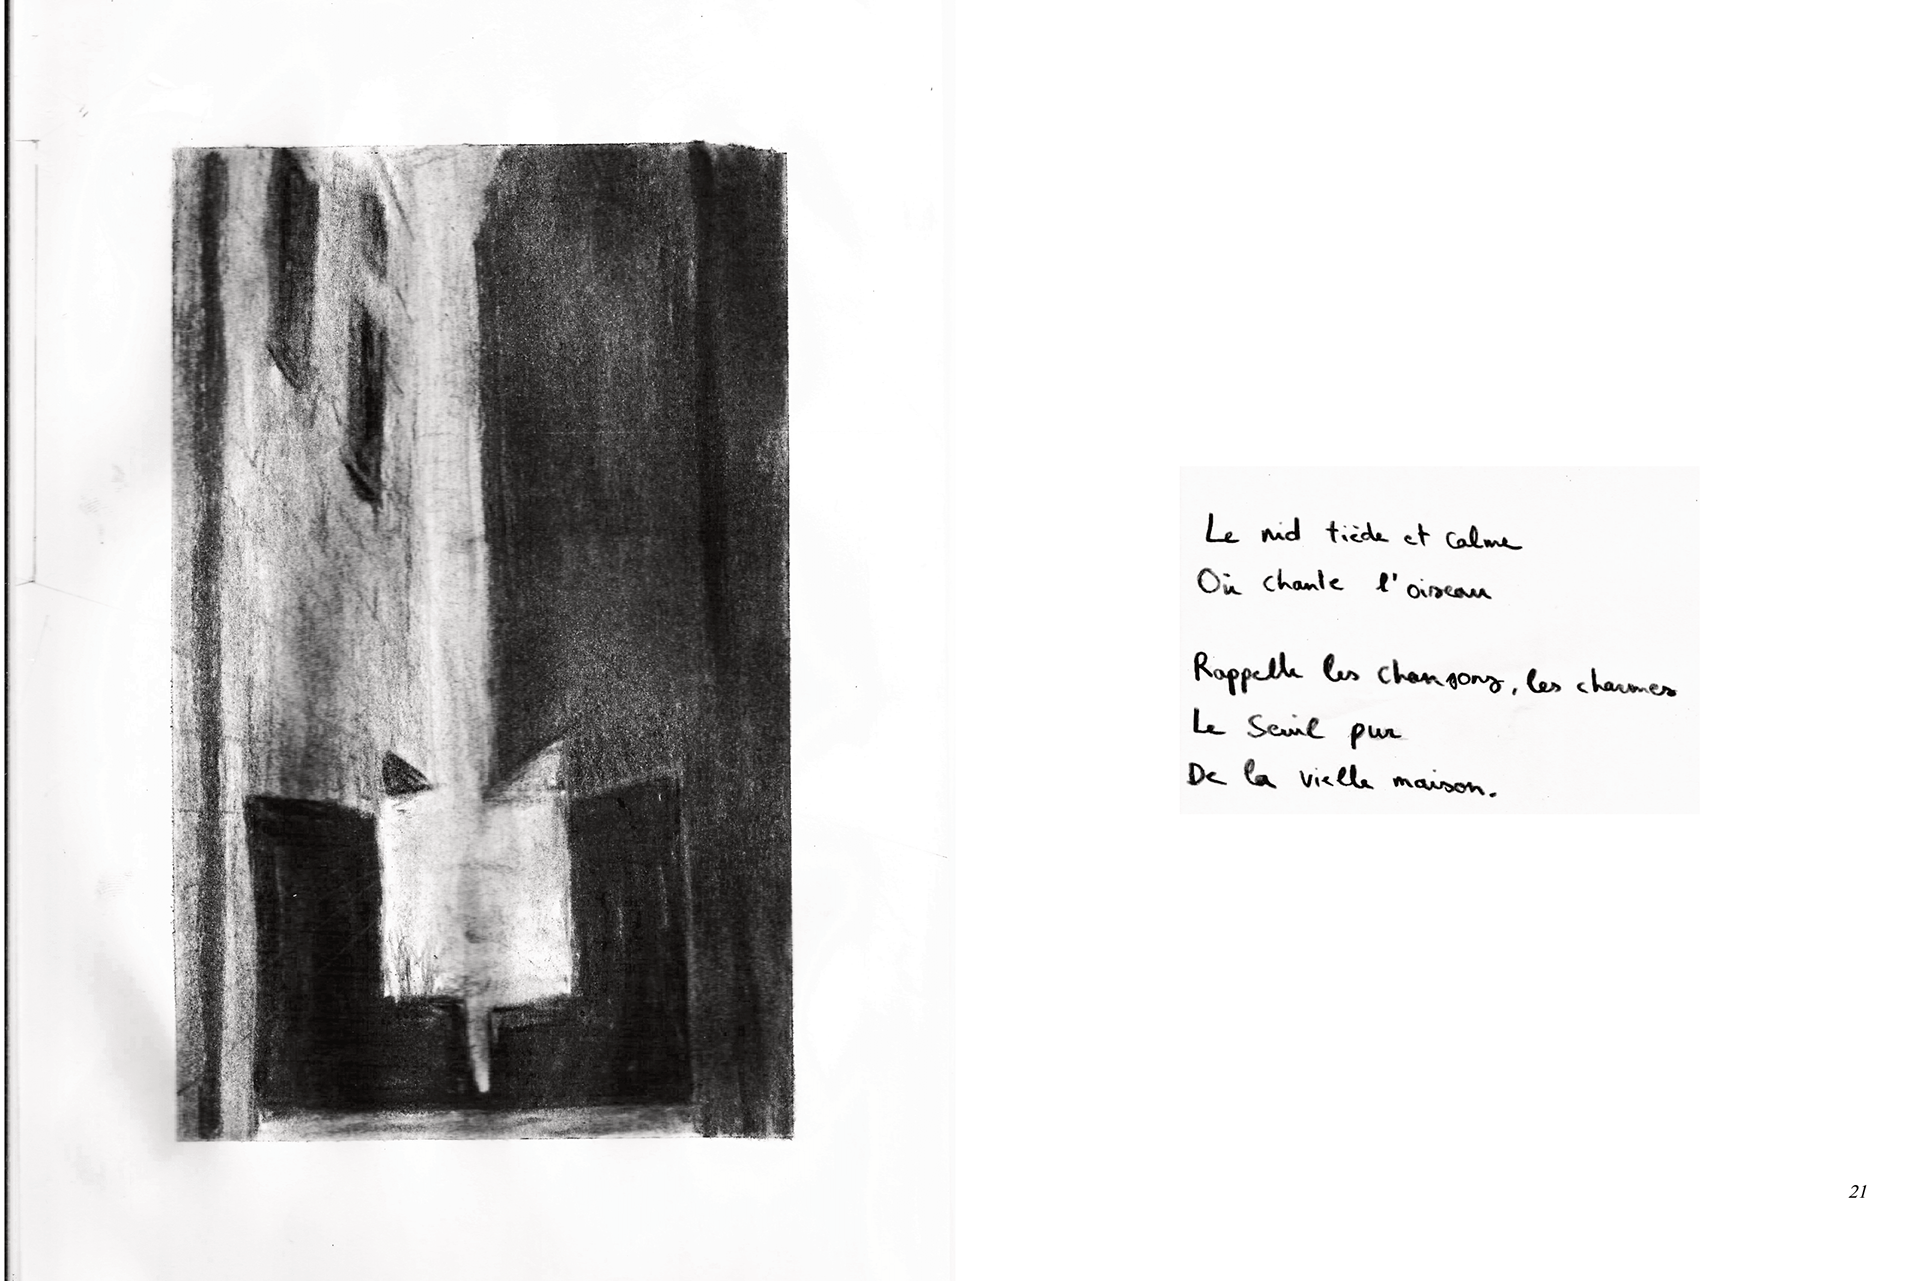 Le nid tiède et calme
Où chante l'oiseau
Rappelle les chansons, les charmes
Le Seuil pur
De la vielle maison.
21